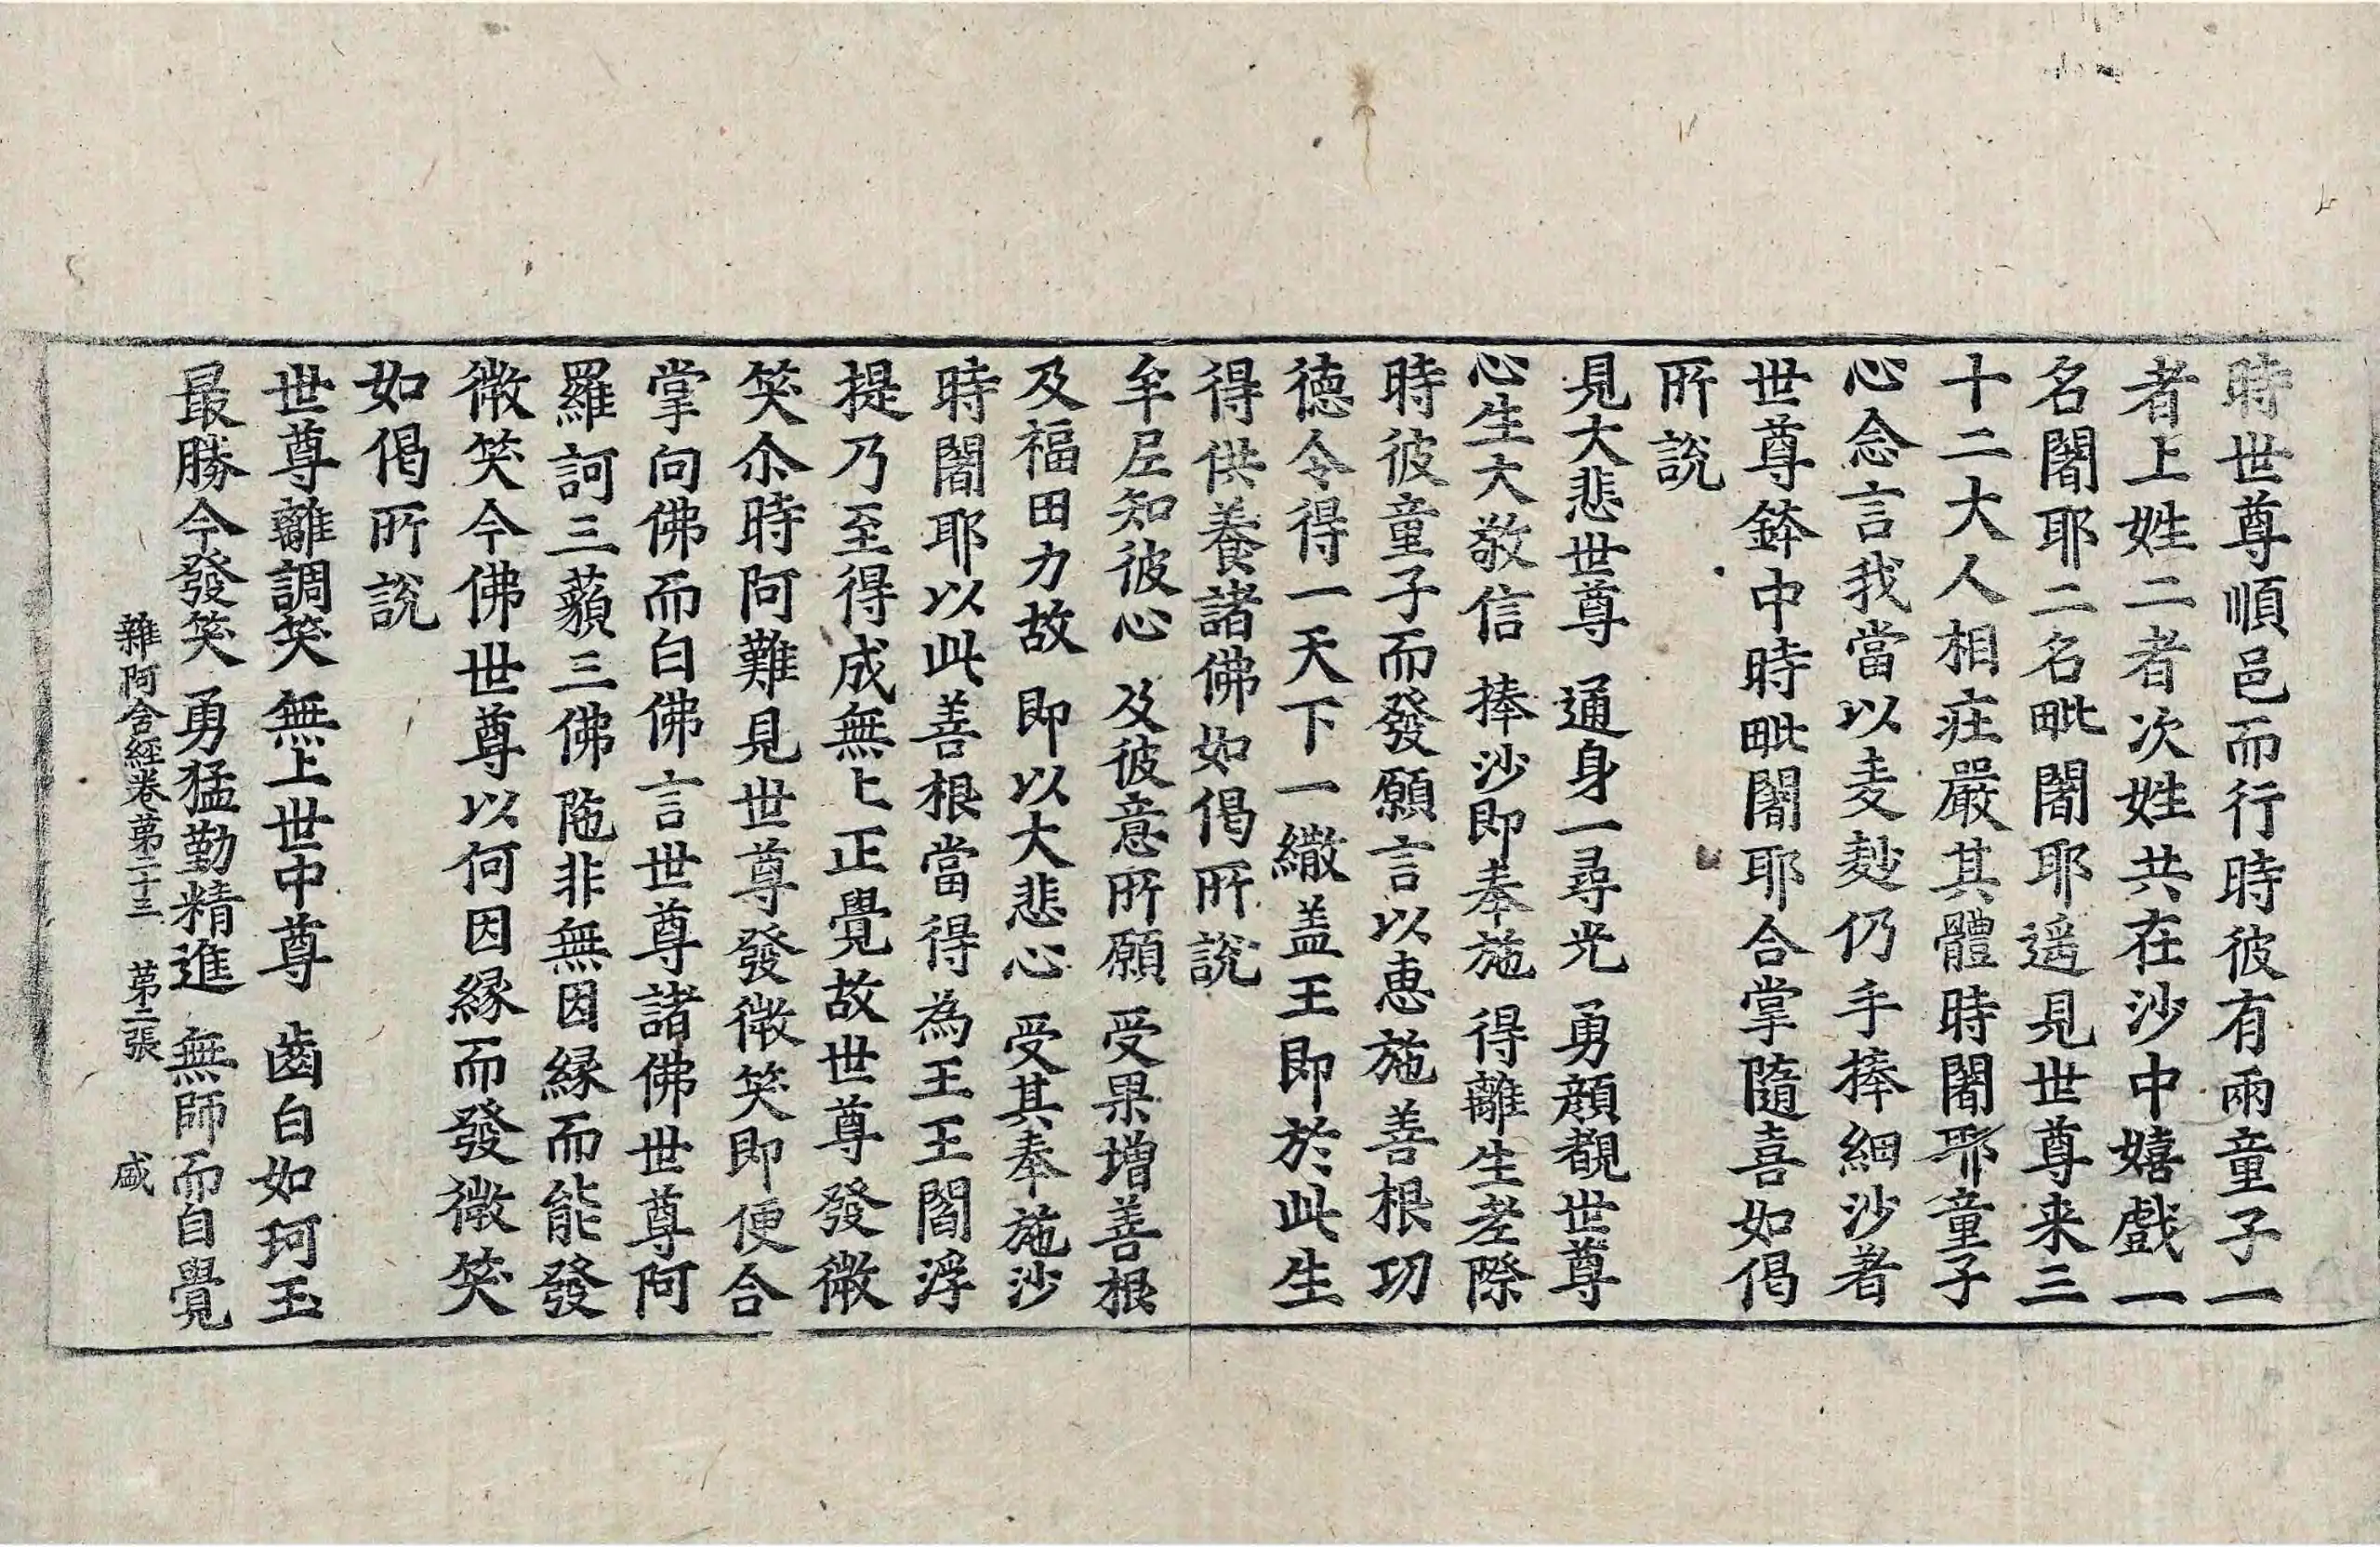 時世尊順邑而行時彼有兩童子一
者上姓二者次姓共在沙中嬉戲一
名闍耶二名毗闍耶遥見世尊来三
十二大人相莊嚴其體時闍耶童子
心念言我當以麦麨仍手捧細沙著
世尊鉢中時毗闍耶合掌隨喜如偈
所說
見大悲世尊　通身一尋光　勇顔覩世尊
心生大敬信　捧沙即奉施　得離生老際
時彼童子而發願言以惠施善根功
德令得一天下一繖盖王即於此生
得供養諸佛如偈所說
牟尼知彼心　及彼意所願　受果增善根
及福田力故　即以大悲心　受其奉施沙
時闍耶以此善根當得為王王閻浮
提乃至得成無上正覺故世尊發微
笑尒時阿難見世尊發微笑即便合
掌向佛而白佛言世尊諸佛世尊阿
羅訶三藐三佛陁非無因緣而能發
微笑今佛世尊以何因緣而發微笑
如偈所說
世尊離調笑　無上世中尊　齒白如珂玉
最勝今發笑　勇猛勤精進　無師而自覺
雜阿含經卷第二十三　第二張　盛